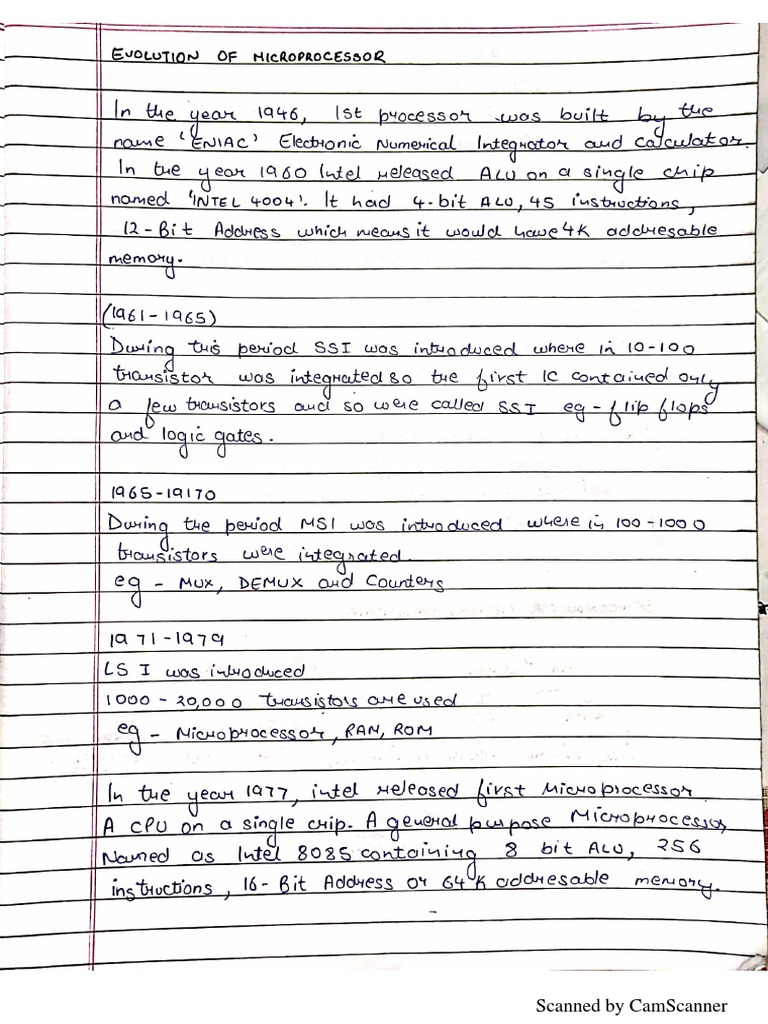 EVOLUTION OF MICROPROCESSOR
In the year 1946, 1st processor was built by the
name 'ENIAC' Electronic Numerical Integrator and calculator.
In the year 1960 Intel released ALU on a single chip
named 'INTEL 4004'. It had 4-bit ALU, 45 instructions,
12-Bit Address which means it would have 4K addresable
memory.
(1961-1965)
During this period SSI was introduced where in 10-100
transistor was integrated so the first IC contained only
a few transistors and so were called SSI eg - flip flops
and logic gates.
1965-19170
During the period MSI was introduced where in 100-1000
transistors were integrated.
eg - MUX, DEMUX and Counters
1971-1979
LSI was introduced
1000-20,000 transistors are used
eg - Microprocessor, RAM, ROM
In the year 1977, intel released first Microprocessor
A CPU on a single chip. A general purpose Microprocessor
Named as Intel 8085 containing 8 bit ALU, 256
instructions, 16-Bit Address or 64K addresable memory.
Scanned by CamScanner